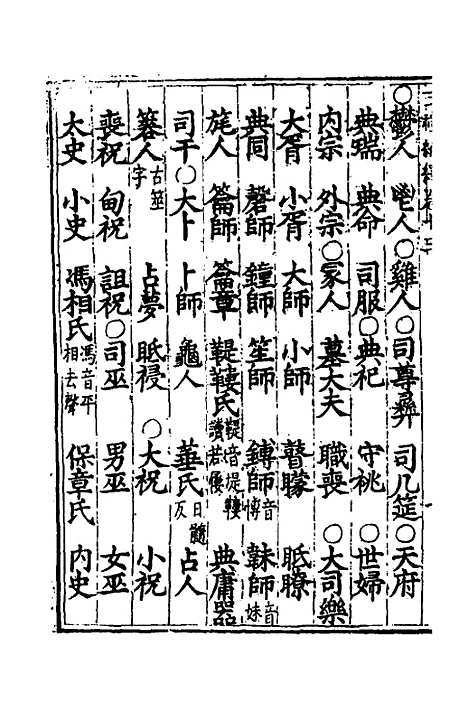 ○鬱人　鬯人○雞人○司尊彝　司几筵○天府
典瑞　典命　司服○典祀　守祧　○世婦
内宗　外宗○冢人　墓大夫　職喪　○大司樂
大胥　小胥　大師　小師　瞽矇　眡瞭
典同　磬師　鐘師　笙師　鎛師音博　韎師音妹
旄人　籥師　籥章　鞮鞻氏鞮音提鞻讀若屨　典庸器
司干○大卜　卜師　龜人　菙氏　占人
簭人古筮字　占夢　眡祲　○大祝　小祝
喪祝　甸祝　詛祝○司巫　男巫　女巫
太史　小史　馮相氏馮音平相去聲　保章氏　内史